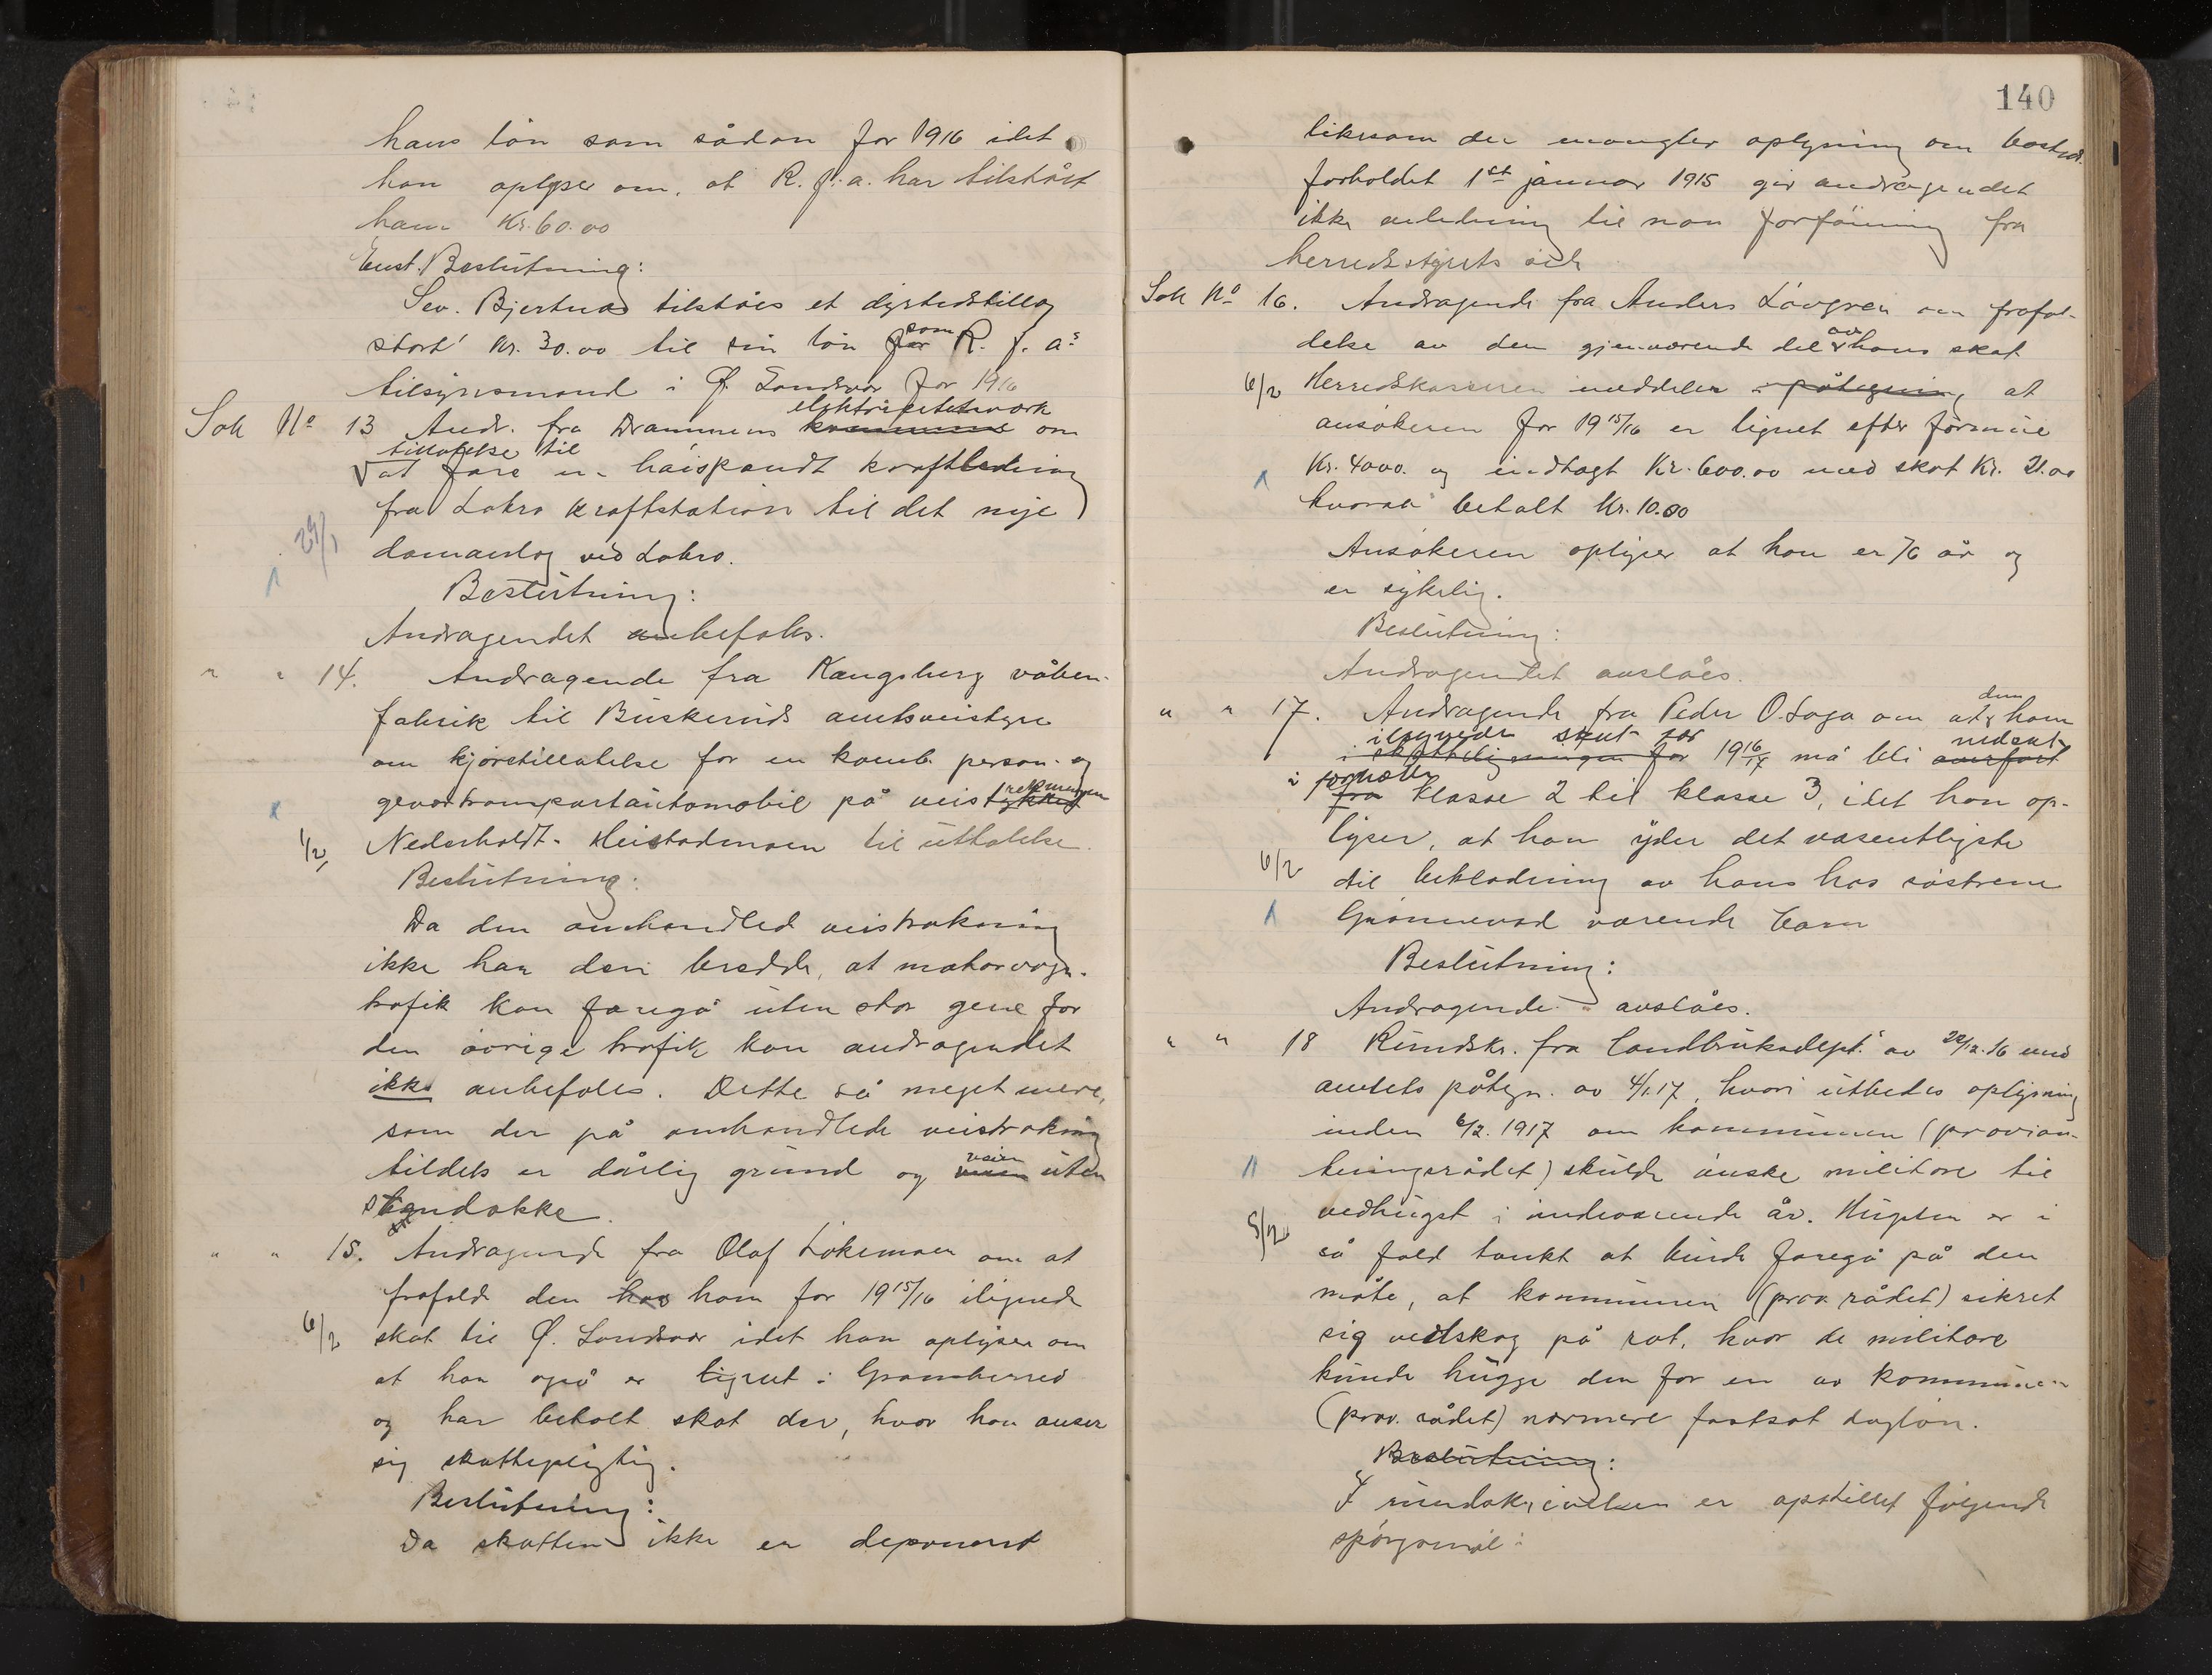 hans løn som sådan for 1916 idet
han oplyser om, at R. f. a. har tilstått
ham Kr. 60.00
Enst. Beslutning:
Sev. Bjertnæs tilståes et dyrtidstillæg
stort Kr. 30.00 til sin løn som R. f. a.s
tilsynsmand i Ø. Sandsvær for 1916
Sak No 13 Andr. fra Drammens elektricitetsverk om
tillatelse til
at føre en høispændt kraftledning
fra Labro kraftstation til det nye
29/1
damanlæg ved Labro.
Beslutning:
Andragendet anbefales.
" " 14. Andragende fra Kongsberg våben-
fabrik til Buskeruds amtsveistyre
om kjøretillatelse for en komb. person- og
godstransportautomobil på veistrekningen
1/2 Nederholdt - Heistadmoen til uttalelse.
Beslutning:
Da den omhandlede veistrækning
ikke har den bredde, at motorvogn-
trafik kan foregå uten stor gene for
den øvrige trafik kan andragendet
ikke anbefales. Dette så meget mere,
som der på omhandlede veistrækning
tildels er dårlig grund og veien uten
stendække.
" " 15. Andragende fra Olaf Løkemoen om at
frafalde den hos ham for 1915/16 ilignede
6/2 skat til Ø. Sandsvær idet han oplyser om
at han også er lignet i Gramherred
og har betalt skat der, hvor han anser
sig skattepligtig.
Beslutning:
Da skatten ikke er deponert
140
likesom der mangler oplysning om bosteds-
forholdet 1st januar 1915 gir andragendet
ikke anledning til noen forføining fra
herredsstyrets side
Sak No 16. Andragende fra Anders Løvgren om frafal-
delse av den gjenværende del av hans skat
6/2 Herredskassereren meddeler i påtegning, at
ansøkeren for 1915/16 er lignet efter formue
Kr. 4000. og indtægt Kr. 600.00 med skat Kr. 21.00
hvorav betalt Kr. 10.00
Ansøkeren oplyser at han er 76 år og
er sykelig.
Beslutning:
Andragendet avslåes.
" " 17. Andragende fra Peder O. Laga om at den ham
ilignede skat for nedsat
i skatteligningen for 1916/17 må bli overført
i forhold
fra klasse 2 til klasse 3, idet han op-
lyser, at han yder det væsentligste
6/2
til beklædning av hans hos søstrene
Grønnevad værende barn
Beslutning:
Andragende avslåes.
" " 18 Rundskr. fra Landbruksdept. av 22/12.16 med
amtets påtegn. av 4/1.17, hvori utbedes oplysning
inden 6/2. 1917 om kommunen (provian-
teringsrådet) skulde ønske militære til
vedhugst i indeværende år. Hugsten er i
5/2
så fald tænkt at kunde foregå på den
måte, at kommunen (prov. rådet) sikret
sig vedskog på rot, hvor de militære
kunde hugge den for en av kommunen
(prov. rådet) nærmere fastsat dagløn.
Beslutning:
I rundskrivelsen er opstillet følgende
spørgsmål: